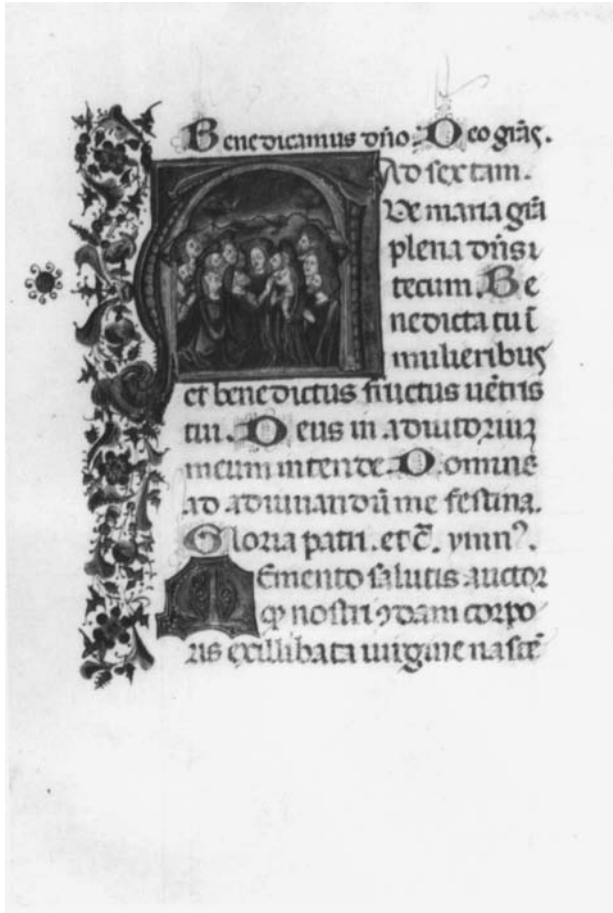 Benedicamus dño. Deo grãs.
Ad sextam.
Ve maria grã
plena dñs i
tecum. Be
nedicta tu ĩ
mulieribus
et benedictus fructus uẽtris
tui. Deus in adiutoriuʒ
meum intende. Domine
ad adiuuandũ me festina.
Gloria patri. et c̃. ymnꝰ.
Memento salutis auctor
ꝙ nostri ꝯdam corpo
ris exillibata uirgine nascẽ